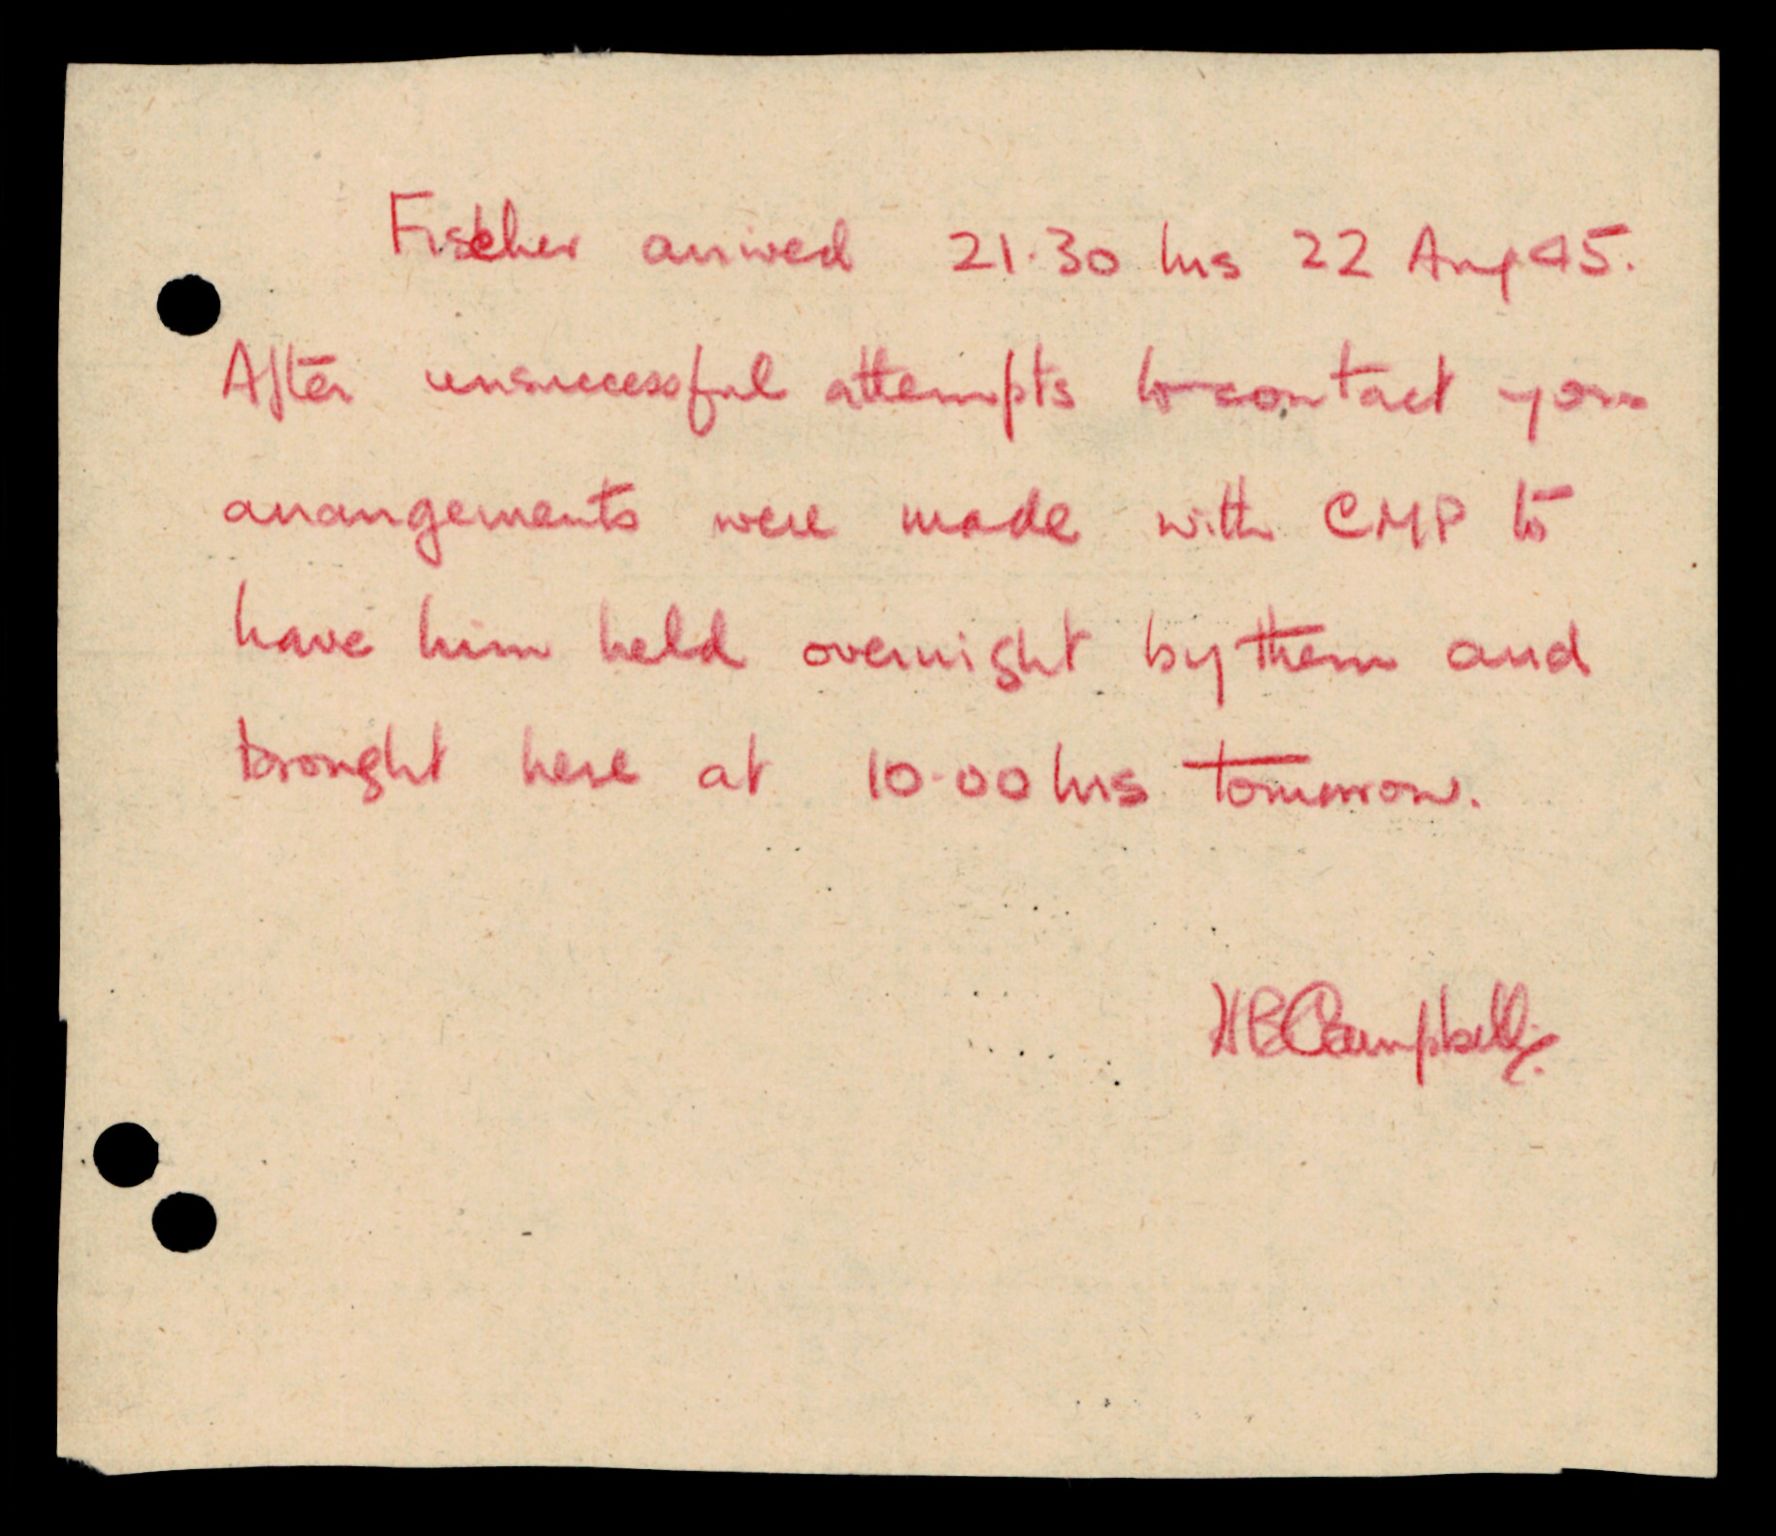 Fischer arrived 21.30 hrs 22 Aug 45.
After unsuccessful attempts to contact you
arrangements were made with CMP to
have him held overnight by them and
brought here at 10.00 hrs tomorrow.
HBCampbell